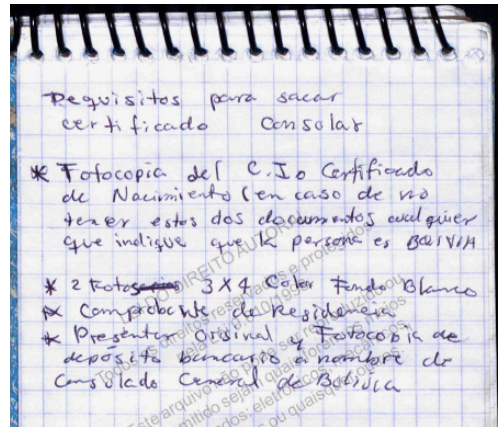 Requisitos para sacar
certificado Consolar
* Fotocopia del C.I o Certificado
de Nacimiento (en caso de no
tener estos dos documentos cualquier
que indique que la persona es BOLIVIA
* 2 Fotos 3X4 Color Fondo Blanco
* Comprobante de Residencia
* Presentar Orisinal y Fotocopia de
depósito bancario a nombre de
Consolado General de Bolivia